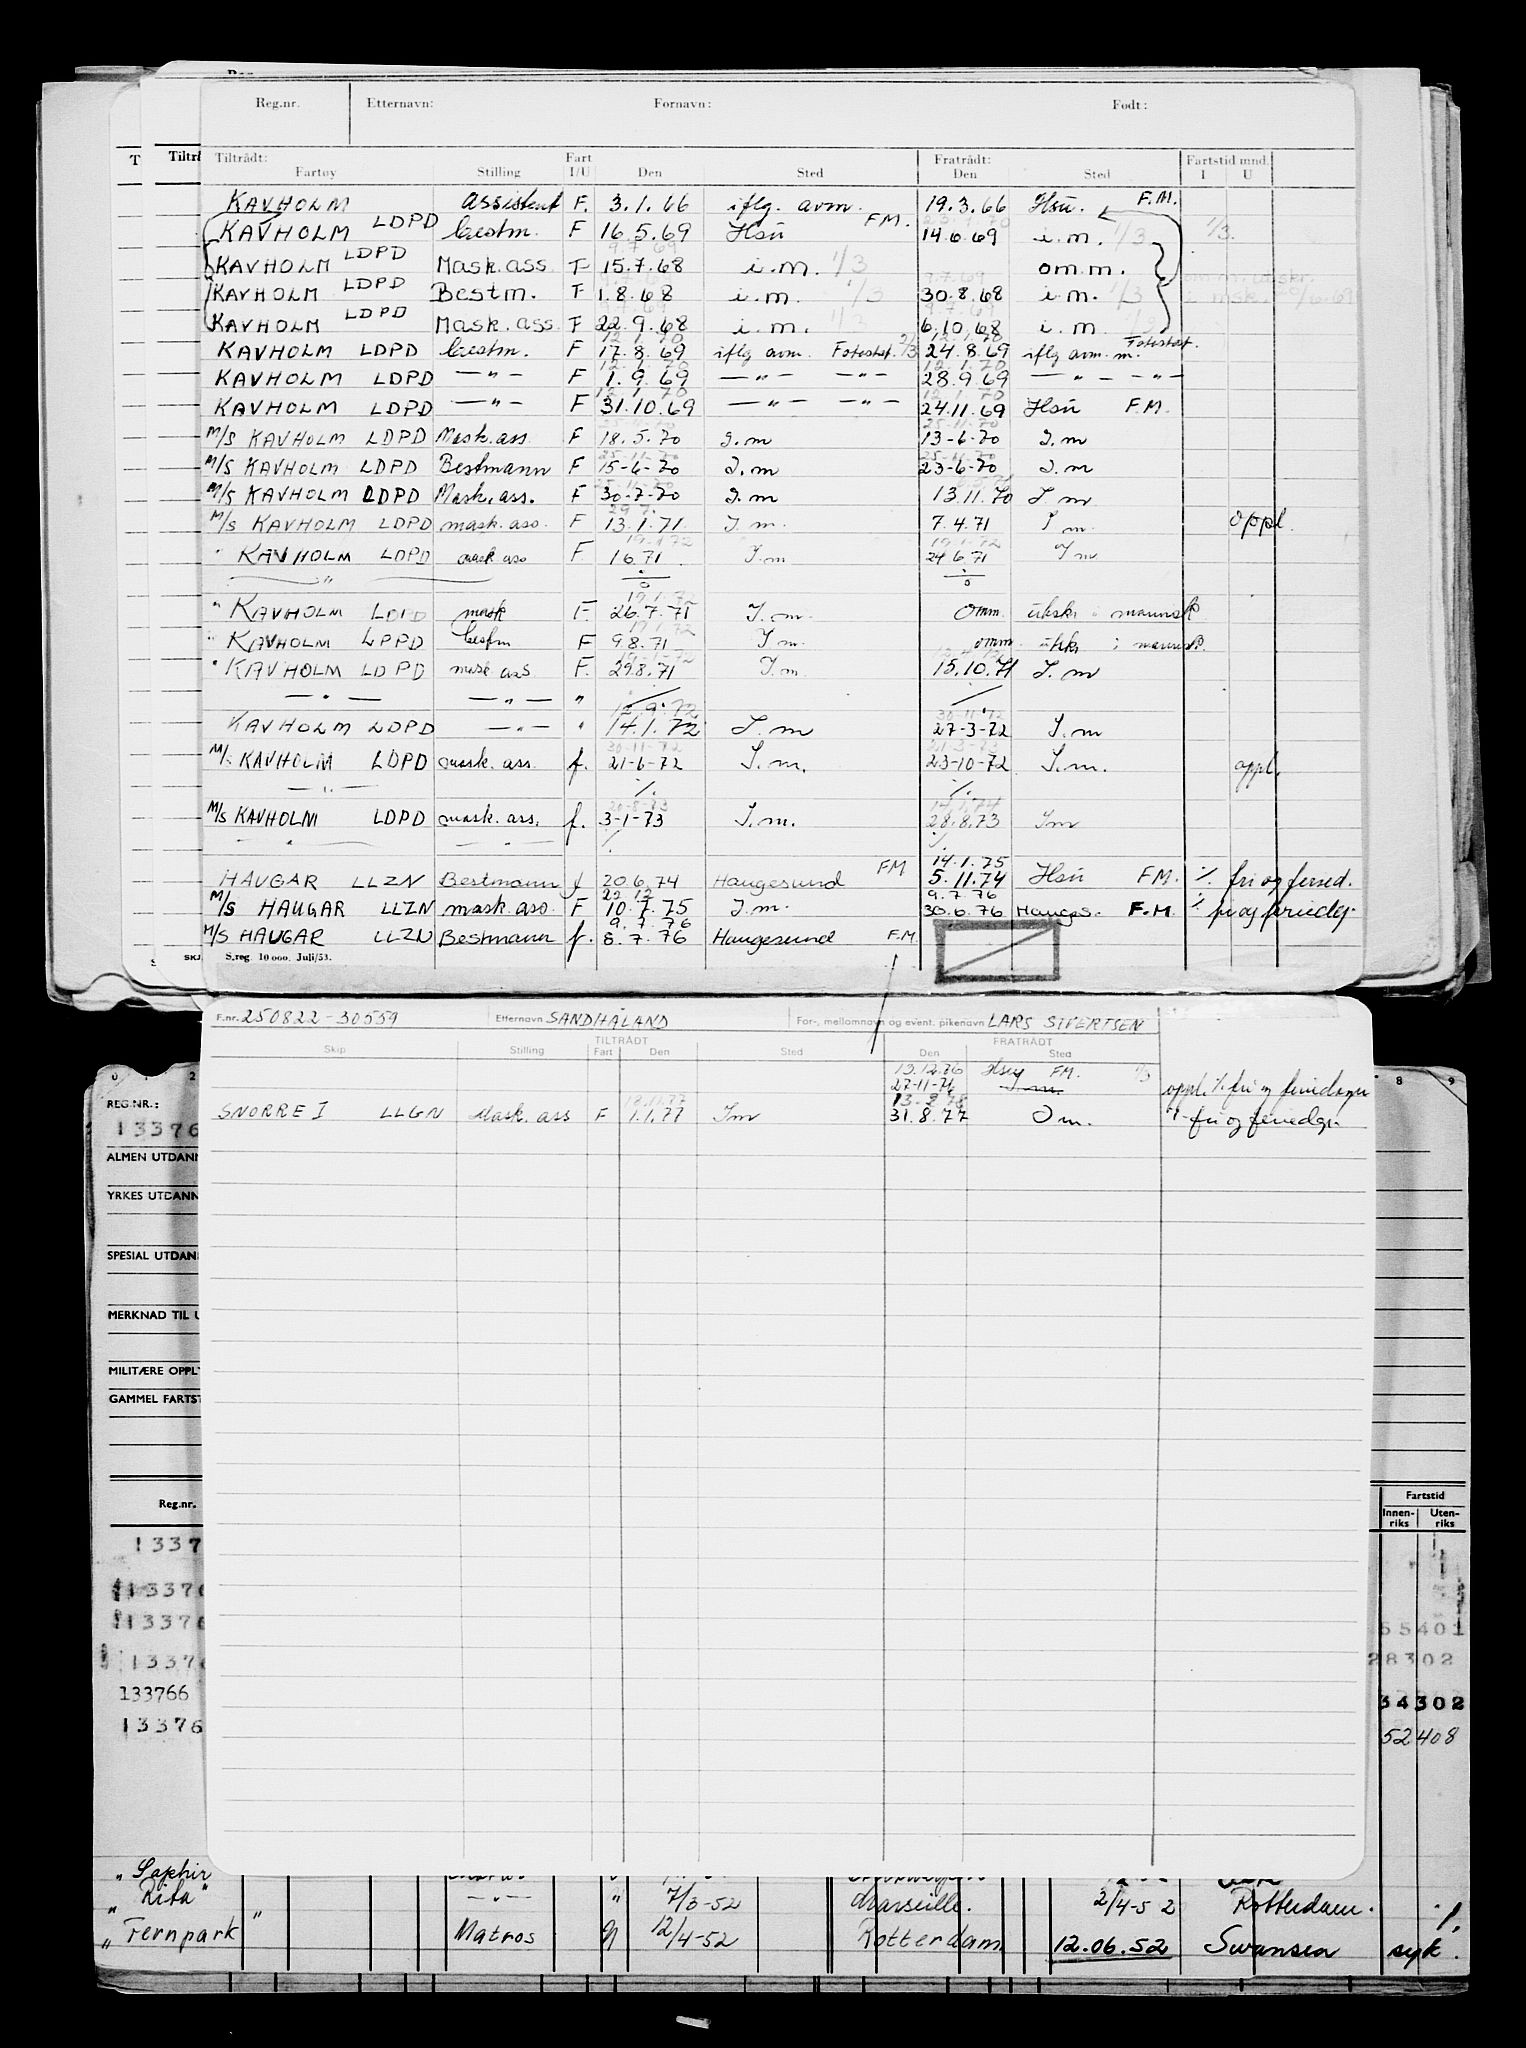 Reg.nr. Etternavn: Fornavn: Født:
Tiltrådt: Fart Fratrådt: Fartstid mnd.
Fartøy Stilling I/U Den Sted Den Sted I U
KAVHOLM assistent F. 3.1.66 iflg. avm. 19.3.66 Hsü. F.M.
KAVHOLM LDPD bestm. F 16.5.69 Hsü F.M. 14.6.69 i.m. 1/3 1/3.
KAVHOLM LDPD Mask.ass. F 15.7.68 i.m. 1/3 omm.
KAVHOLM LDPD Bestm. F 1.8.68 i.m. 1/3 30.8.68 i.m. 1/3
KAVHOLM LDPD Mask.ass. F 22.9.68 i.m. 1/3 6.10.68 i.m.
KAVHOLM LDPD bestm. F 17.8.69 iflg avm. Fotostat. 2/3 24.8.69 iflg avm. m. Fotostat.
KAVHOLM LDPD —"— F 1.9.69 —"— —"— 28.9.69 —"— —"—
KAVHOLM LDPD —"— F 31.10.69 —"— —"— 24.11.69 Hsü F.M.
M/S KAVHOLM LDPD Mask.ass. F 18.5.70 I.m 13-6-70 I.m
M/S KAVHOLM LDPD Bestmann F 15-6-70 I.m 23-6-70 I.m
M/S KAVHOLM LDPD Mask.ass. F 30-7-70 I.m 13.11.70 I m
M/S KAVHOLM LDPD mask.ass. F 13.1.71. I.m. 7.4.71 I m. oppl.
" KAVHOLM LDPD mask ass F. 1.6.71 I.m 24.6.71 I m
"
" KAVHOLM LDPD mask F. 26.7.71 I.m. Omm. utskr. i mannsk.
" KAVHOLM LDPD bestm F 9.8.71 I m. omm. utskr. i mannsk.
" KAVHOLM LDPD mask ass F. 29.8.71 I.m 15.10.71 I.m
—"— —"— " ./. ./.
KAVHOLM LDPD —"— " 14.1.72 I.m 27-3-72 I.m
M/S KAVHOLM LDPD mask. ass. f. 21-6-72 I.m. 23-10-72 I.m. oppl.
—"— ./. ./.
M/S KAVHOLM LDPD mask. ass. f. 3-1-73 I.m. 28.8.73 I m
" "
14.1.75
HAUGAR LLZN Bestmann f 20.6.74 Haugesund FM 5.11.74 Hsü FM. ./. fri og feried.
M/S HAUGAR LLZN mask.ass. F 10.7.75 I.m. 9.7.76 30.6.76 Hauges. F.M ./. fri og feriedg.
M/S HAUGAR LLZN Bestmann f. 9.7.76 8.7.76 Haugesund F.M
S.reg. 10 000. Juli/53.
F.nr. 250822-30559 Etternavn SANDHÅLAND For-, mellomnavn og event. pikenavn LARS SIVERTSEN
TILTRÅDT FRATRÅDT
Skip Stilling Fart Den Sted Den Sted
13.12.76 Hsü FM. 1/3
27-11-76 I.m. oppl. ./. fri og feriedager
13.2.78
SNORRE I LLGN Mask. ass F 1.1.77 I m 31.8.77 O m. ./. fri og feriedgr.
0 1 2 8 9
REG.NR.:
13376
ALMEN UTDANN
YRKES UTDANN
SPESIAL UTDAN
MERKNAD TIL U
MILITÆRE OPPL
GAMMEL FARTST
Reg.nr. Fartstid
Innenriks Utenriks
1337
13376
13376 55401
1337 28302
133766 34302
13376 52408
" Saphir
" Rita " —"— " 7/3-52 Marseille. 2/4-52 Rotterdam. ./.
" Fernpark " Matros 12/4-52 Rotterdam 12.06.52 Swansea syk.